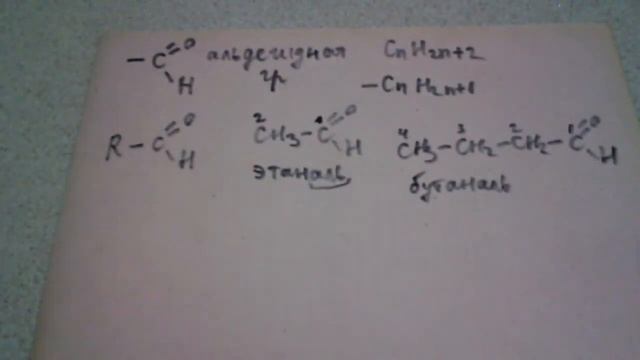 −C=O H альдегидная гр CnH2n+2
−CnH2n+1
R−C=O H
2 CH3−1 C=O H
этаналь
4 CH3−3 CH2−2 CH2−1 C=O H
бутаналь